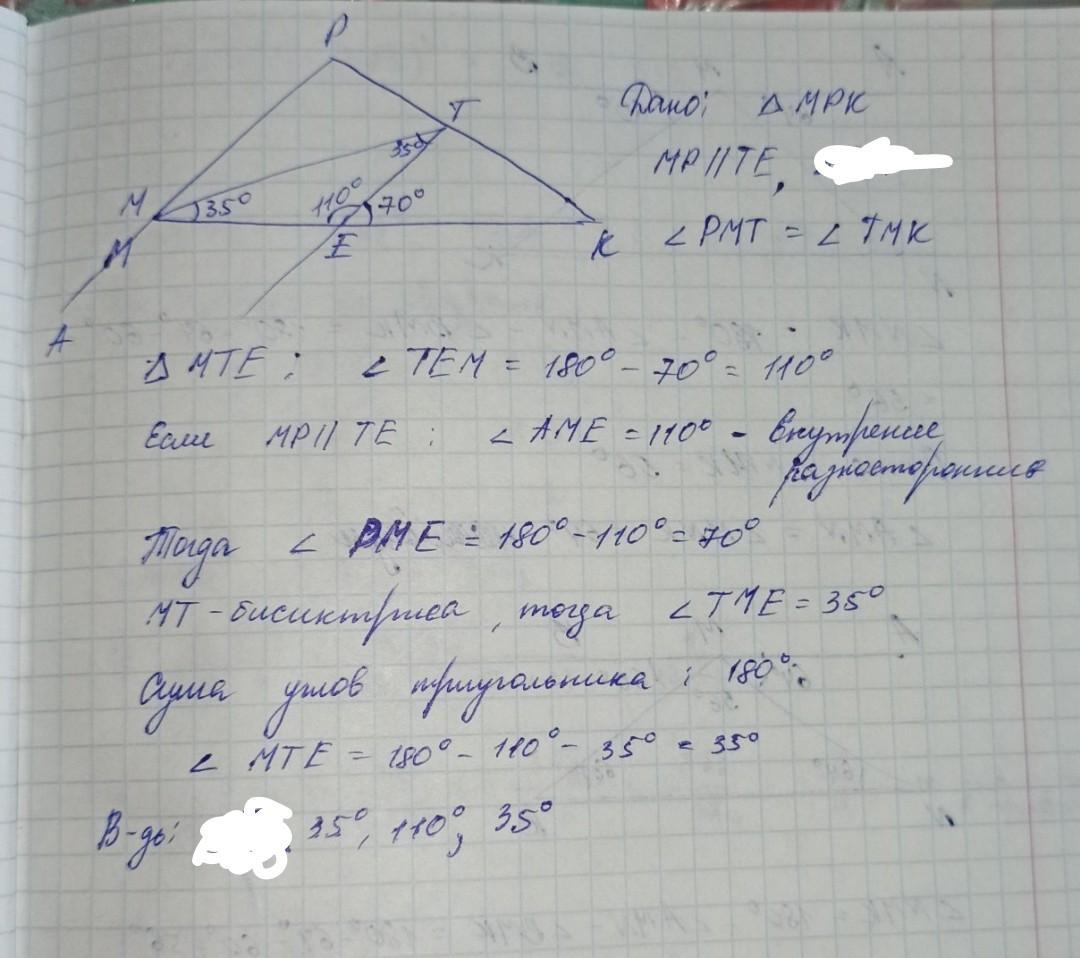 P
T
35°
M
35°
110°
70°
M
E
K
A
Дано: △ MPK
MP||TE,
∠ PMT = ∠ TMK
△ MTE : ∠ TEM = 180° - 70° = 110°
Если MP || TE : ∠ AME = 110° - внутрение
разносторонние
Тогда ∠ PME = 180° - 110° = 70°
MT - бисиктриса, тогда ∠ TME = 35°
Сума углов триугольника : 180°.
∠ MTE = 180° - 110° - 35° = 35°
В-дь: 35°, 110°, 35°